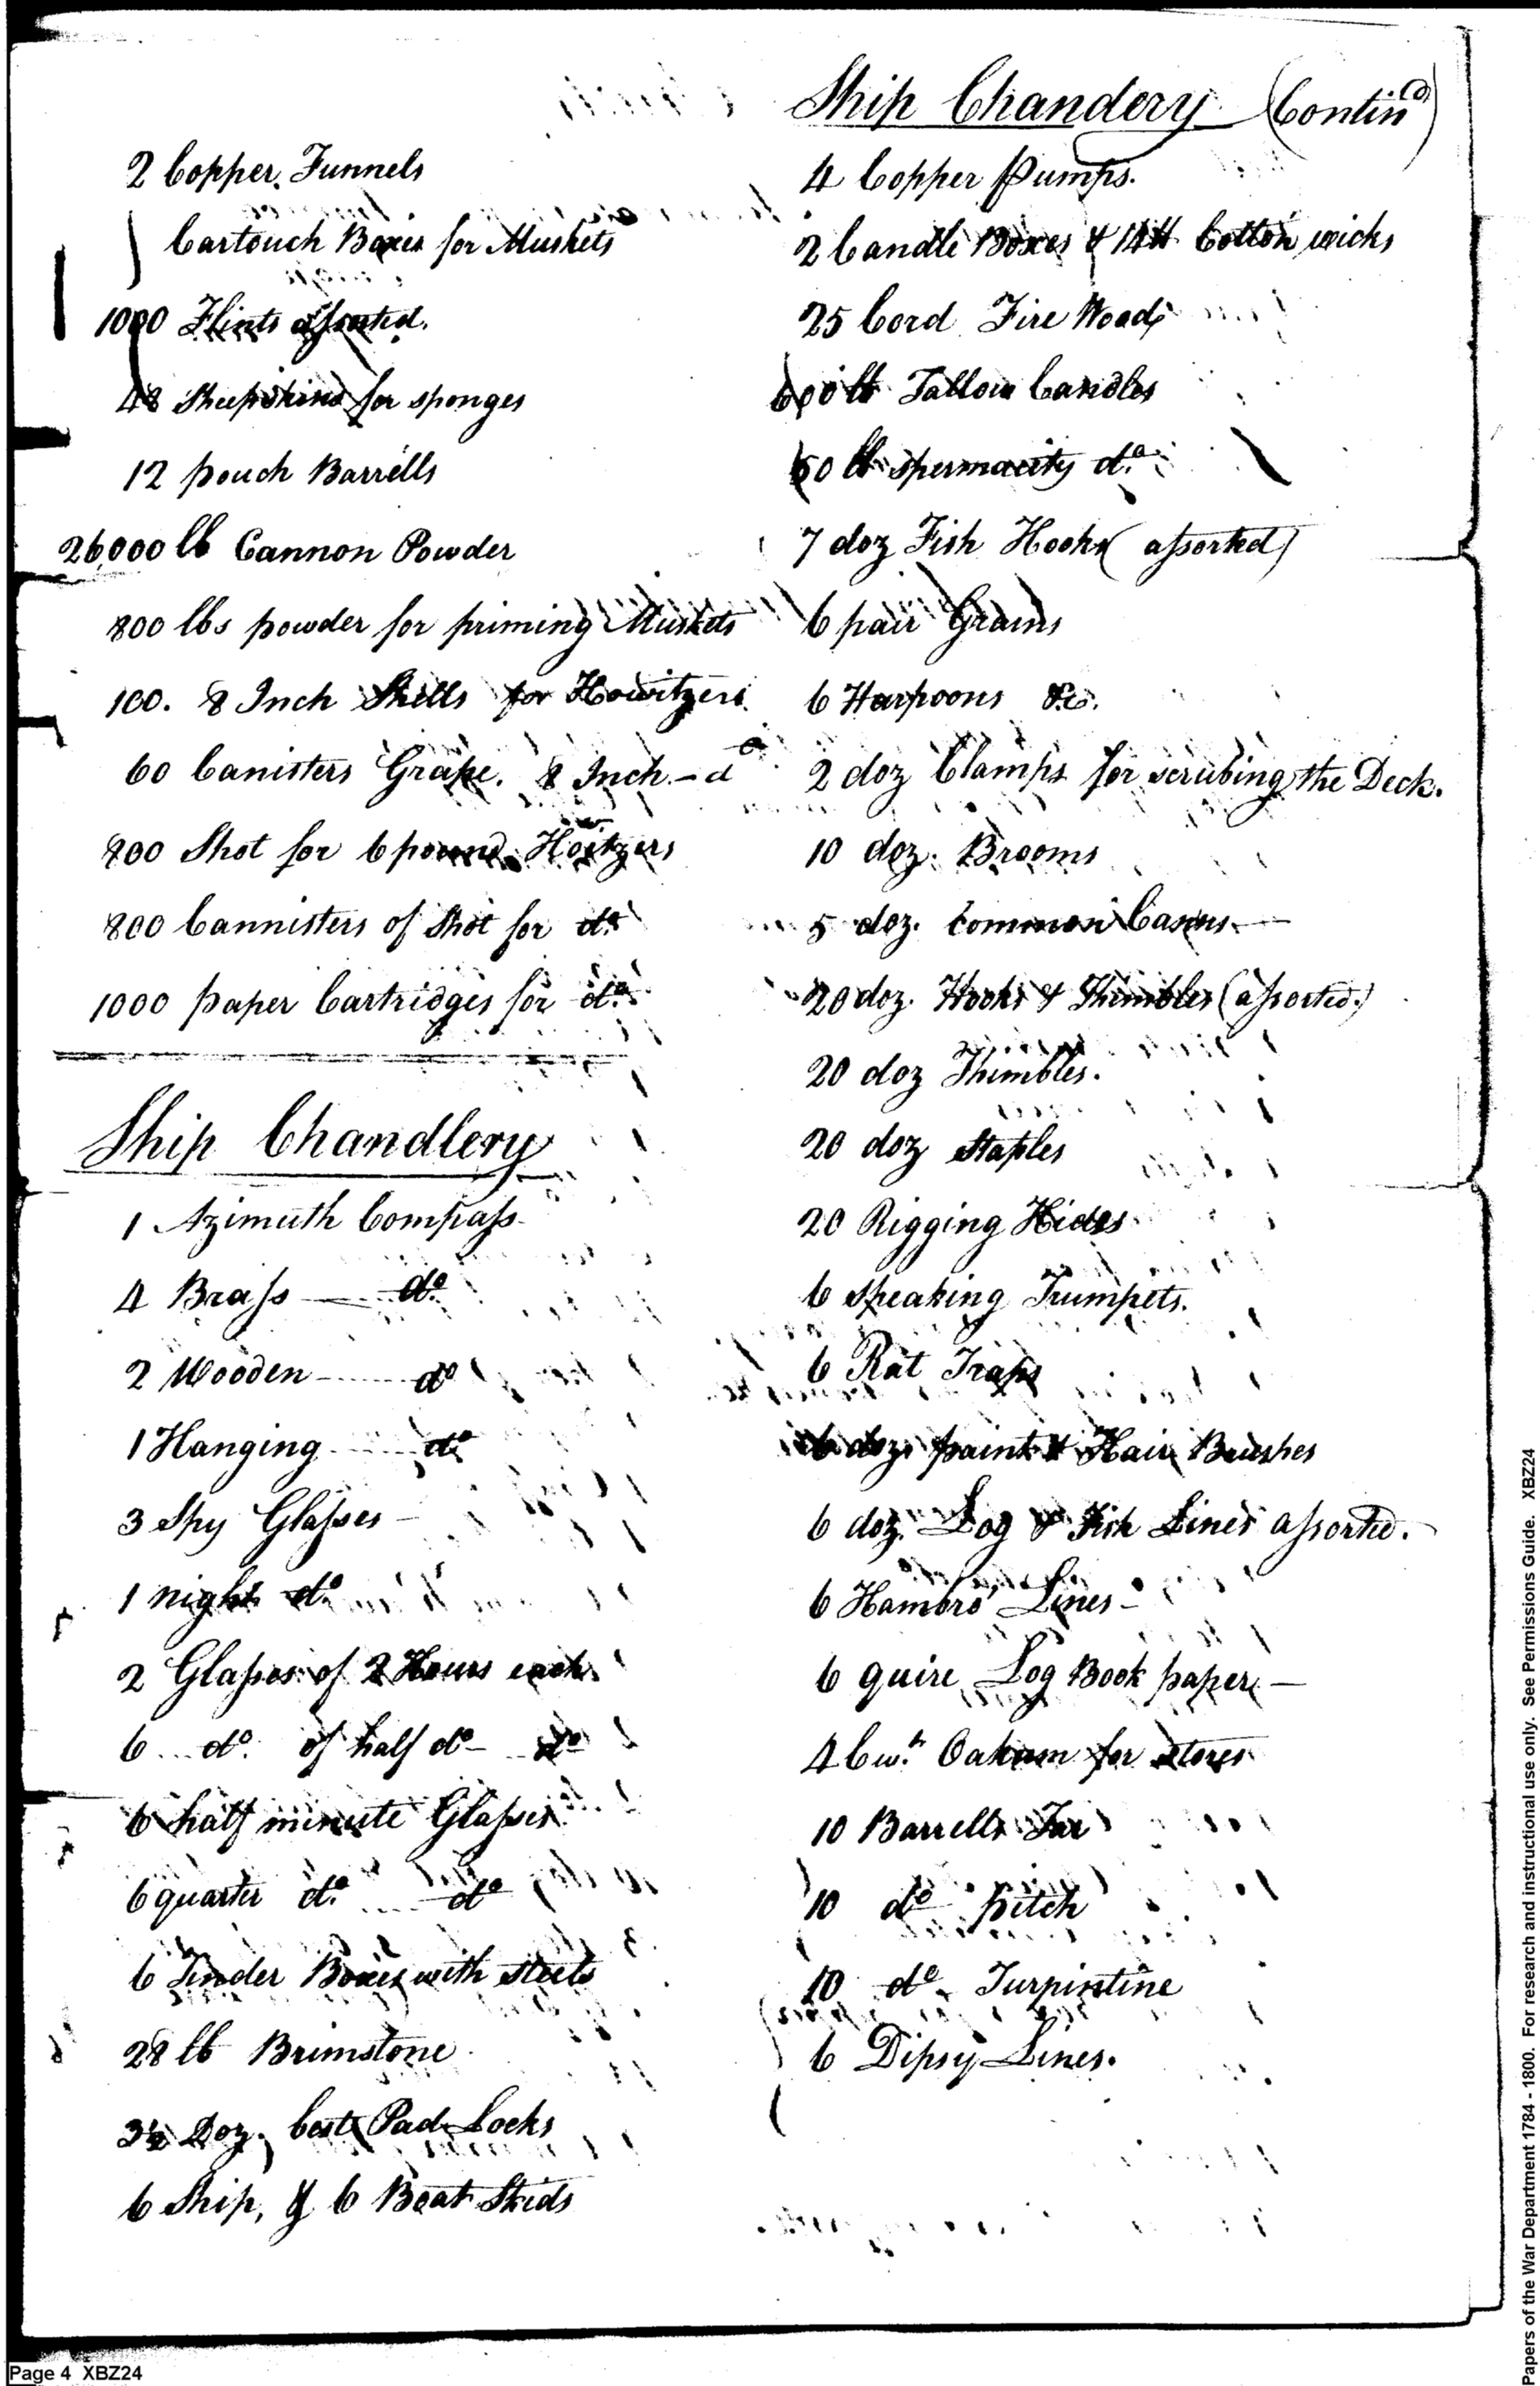 2 Copper Funnels
Cartouch Boxes for Muskets
1000 Flints assorted.
48 Sheepskins for sponges
12 pouch Barrells
26,000 lb Cannon Powder
800 lbs powder for priming Muskets
100. 8 Inch Shells for Howitzers
60 Canisters Grape. 8 Inch - do
800 Shot for 6 pound Hoitzers
800 Cannisters of Shot for do
1000 paper Cartridges for do
Ship Chandlery
1 Azimuth Compass
4 Brass do
2 Wooden do
1 Hanging do
3 Spy Glasses
1 night do
2 Glasses of 2 Hours each
6 do. of half do do
6 half minute Glasses
6 quarter do. do
6 Tinder Boxes with steels
28 lb Brimstone
3½ Doz. best Pad Locks
6 Ship, & 6 Boat Skids
Ship Chandery (Contind)
4 Copper Pumps.
2 Candle Boxes & 14 lb Cotton wicks
25 Cord Fire Wood
600 lb Tallow Candles
50 lb spermacity do.
7 doz Fish Hooks (assorted)
6 pair Grains
6 Harpoons &c.
2 doz Clamps for scrubing the Deck.
10 doz. Brooms
5 doz. common
20 doz. Hooks & Thimbles (assorted.)
20 doz Thimbles.
20 doz Staples
20 Rigging Hides
6 Speaking Trumpets.
6 Rat Traps
6 doz. paint & Hair Brushes
6 doz. Log & Fish Lines assorted.
6 Hambro' Lines
6 quire Log Book paper
4 Cwt. Oakum for stores
10 Barrells Tar
10 do pitch
10 do. Turpintine
6 Dipsy Lines.
Page 4 XBZ24
Papers of the War Department 1784 - 1800. For research and instructional use only. See Permissions Guide. XBZ24